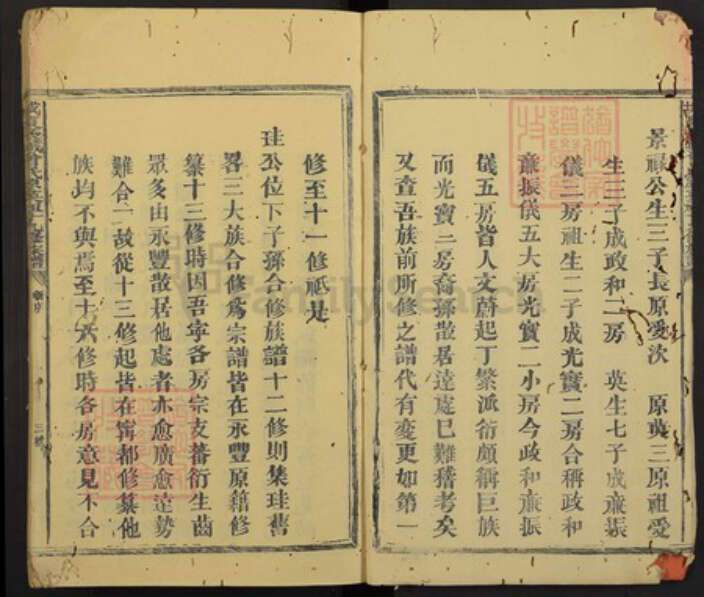 景祿公生三子長原愛次　原英三原祖愛
生三子成政和二房　英生七子成肅振
儀二房祖生二子成光實二房合稱政和
肅振儀五大房光實二小房今政和肅振
儀五房皆人文蔚起丁繁派衍頗稱巨族
而光實二房裔孫散居遠處已難稽考矣
又查吾族前所修之譜代有變更如第一
修至十一修祇是
珪公位下子孫合修族譜十二修則集珪
畧三大族合修爲宗譜皆在永豐原籍修
纂十三修時因吾寧各房宗支蕃衍生齒
眾多由永豐散居他處者亦愈廣愈遠勢
難合一故從十三修起皆在甯都修纂他
族均不與焉至十六修時各房意見不合